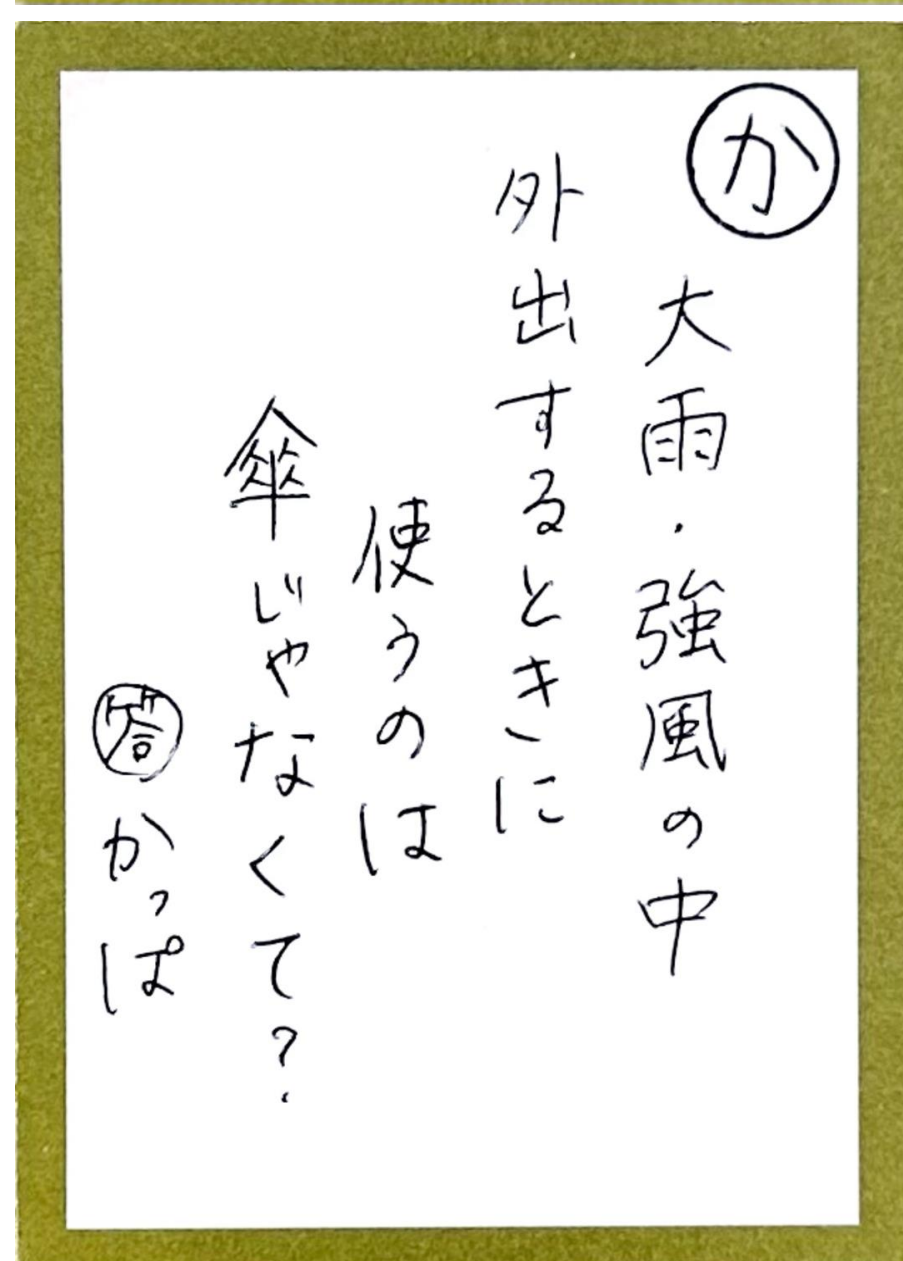 か
大雨・強風の中
外出するときに
使うのは
傘じゃなくて？
答 かっぱ